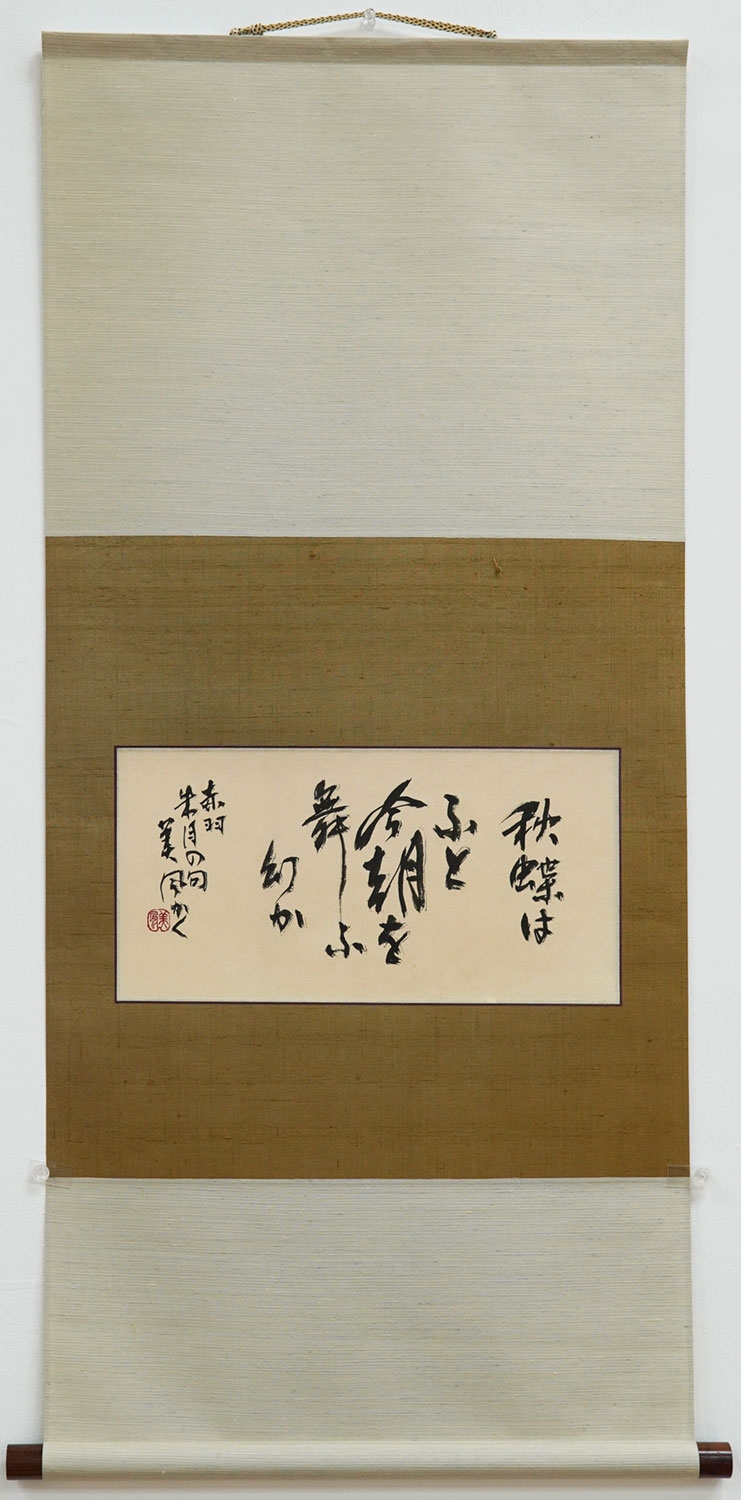 秋蝶は
ふと
今朝を
舞ふ
幻か
赤羽
朱月の句
美風かく
美風